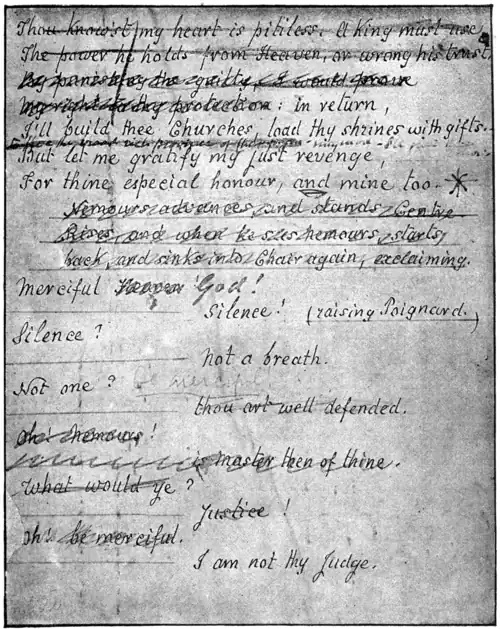 Thou know'st my heart is pitiless. A King must use
The power he holds from Heaven, or wrong his trust,
By punishing the guilty, I would prove
My right to thy protection: in return,
I'll build thee Churches, load thy shrines with gifts.
But let me gratify my just revenge,
For thine especial honour, and mine too. *
Nemours advances and stands Centre
Rises, and when he sees nemours, starts
back, and sinks into Chair again, exclaiming.
Merciful Heaven God!
Silence! (raising Poignard.)
Silence?
Not a breath.
Not one? be merciful
thou art well defended.
Oh! Nemours!
is master then of thine.
What would ye?
Justice!
Oh! be merciful.
I am not thy Judge.